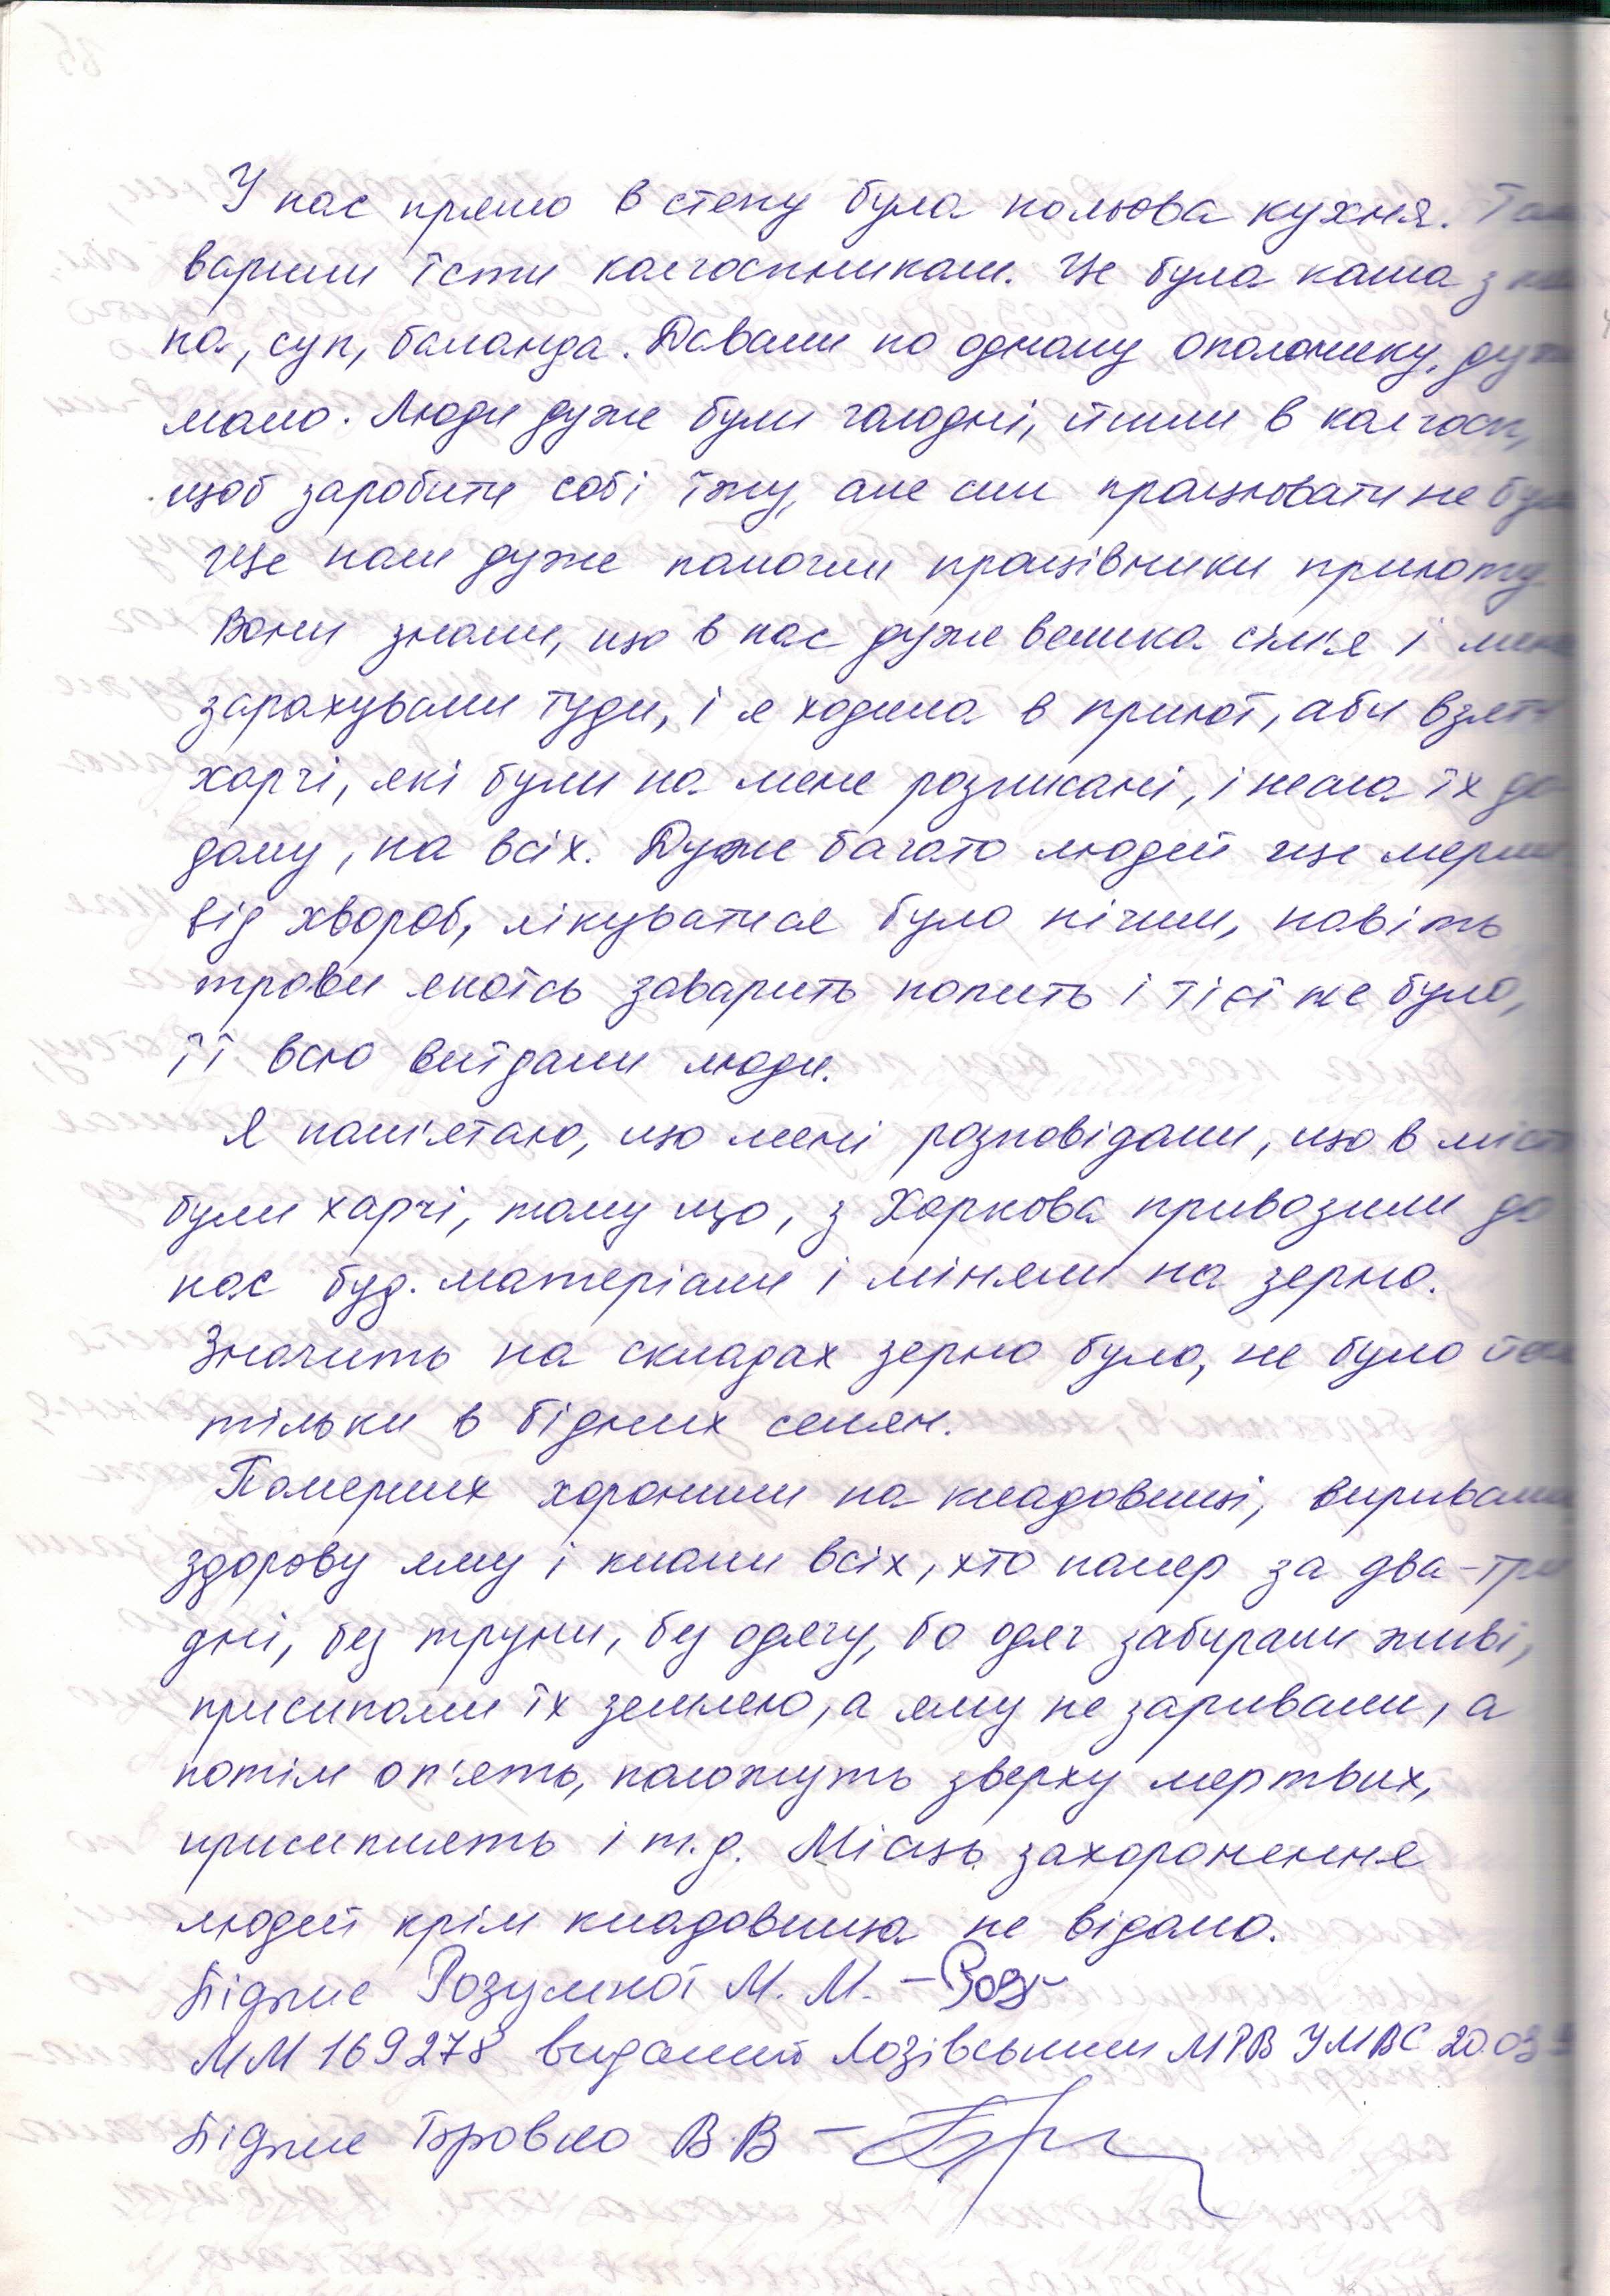 У нас прямо в степу була польова кухня. Там
варили їсти колгоспникам. Це була каша з
па, суп, баланда. Давали по одному ополонику, дуже
мало. Люди дуже були голодні, йшли в колгосп,
щоб заробити собі їжу, але сил працювати не було
Ще нам дуже помогли працівники приюту
Вони знали, що в нас дуже велика сім'я і мене
зарахували туди, і я ходила в приют, аби взяти
харчі, які були на мене розписані, і несла їх до
дому, на всіх. Дуже багато людей ще мерли
від хвороб, лікуватися було нічим, навіть
трави якоїсь заварить попить і тієї не було,
її всю виїдали люди.
Я пам'ятаю, що мені розповідали, що в місті
були харчі, тому що, з Харкова привозили до
нас буд. матеріали і міняли на зерно.
Значить на складах зерно було, не було його
тільки в бідних селян.
Померших хоронили на кладовищі, виривали
здорову яму і клали всіх, хто помер за два-три
дні, без труни, без одягу, бо одяг забирали живі,
присипали їх землею, а яму не заривали, а
потім оп'ять, положуть зверху мертвих,
присиплять і т.д. Місць захоронення
людей крім кладовища не відомо.
Підпис Розумної М. М. –
ММ 169278 виданий Лозівським МРВ УМВС 20.03
Підпис Бровко В.В –